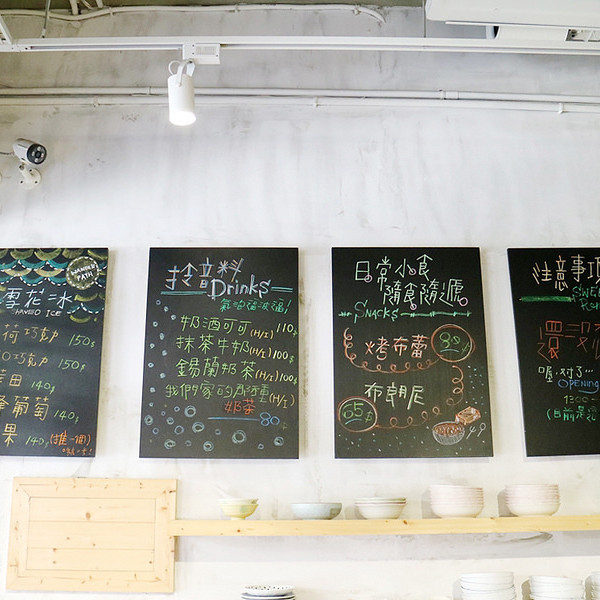 WANDER PATH
雪花冰
SHAVED ICE
荷巧力 150$
巧力 150$
田 140$
葡萄 140$
果 140$ (推一個)
拎音料
Drinks
奶酒可可 (H/I) 110$
抹茶牛奶 (H/I) 100$
錫蘭奶茶 (H/I) 100$
我們家的 (H/I)
奶茶 80
日常小食
隨食隨遞
SNACKS
烤布蕾 80$
布朗尼
65$
注意事項
還
喔,對了…
OPENING
1300-
(目前是